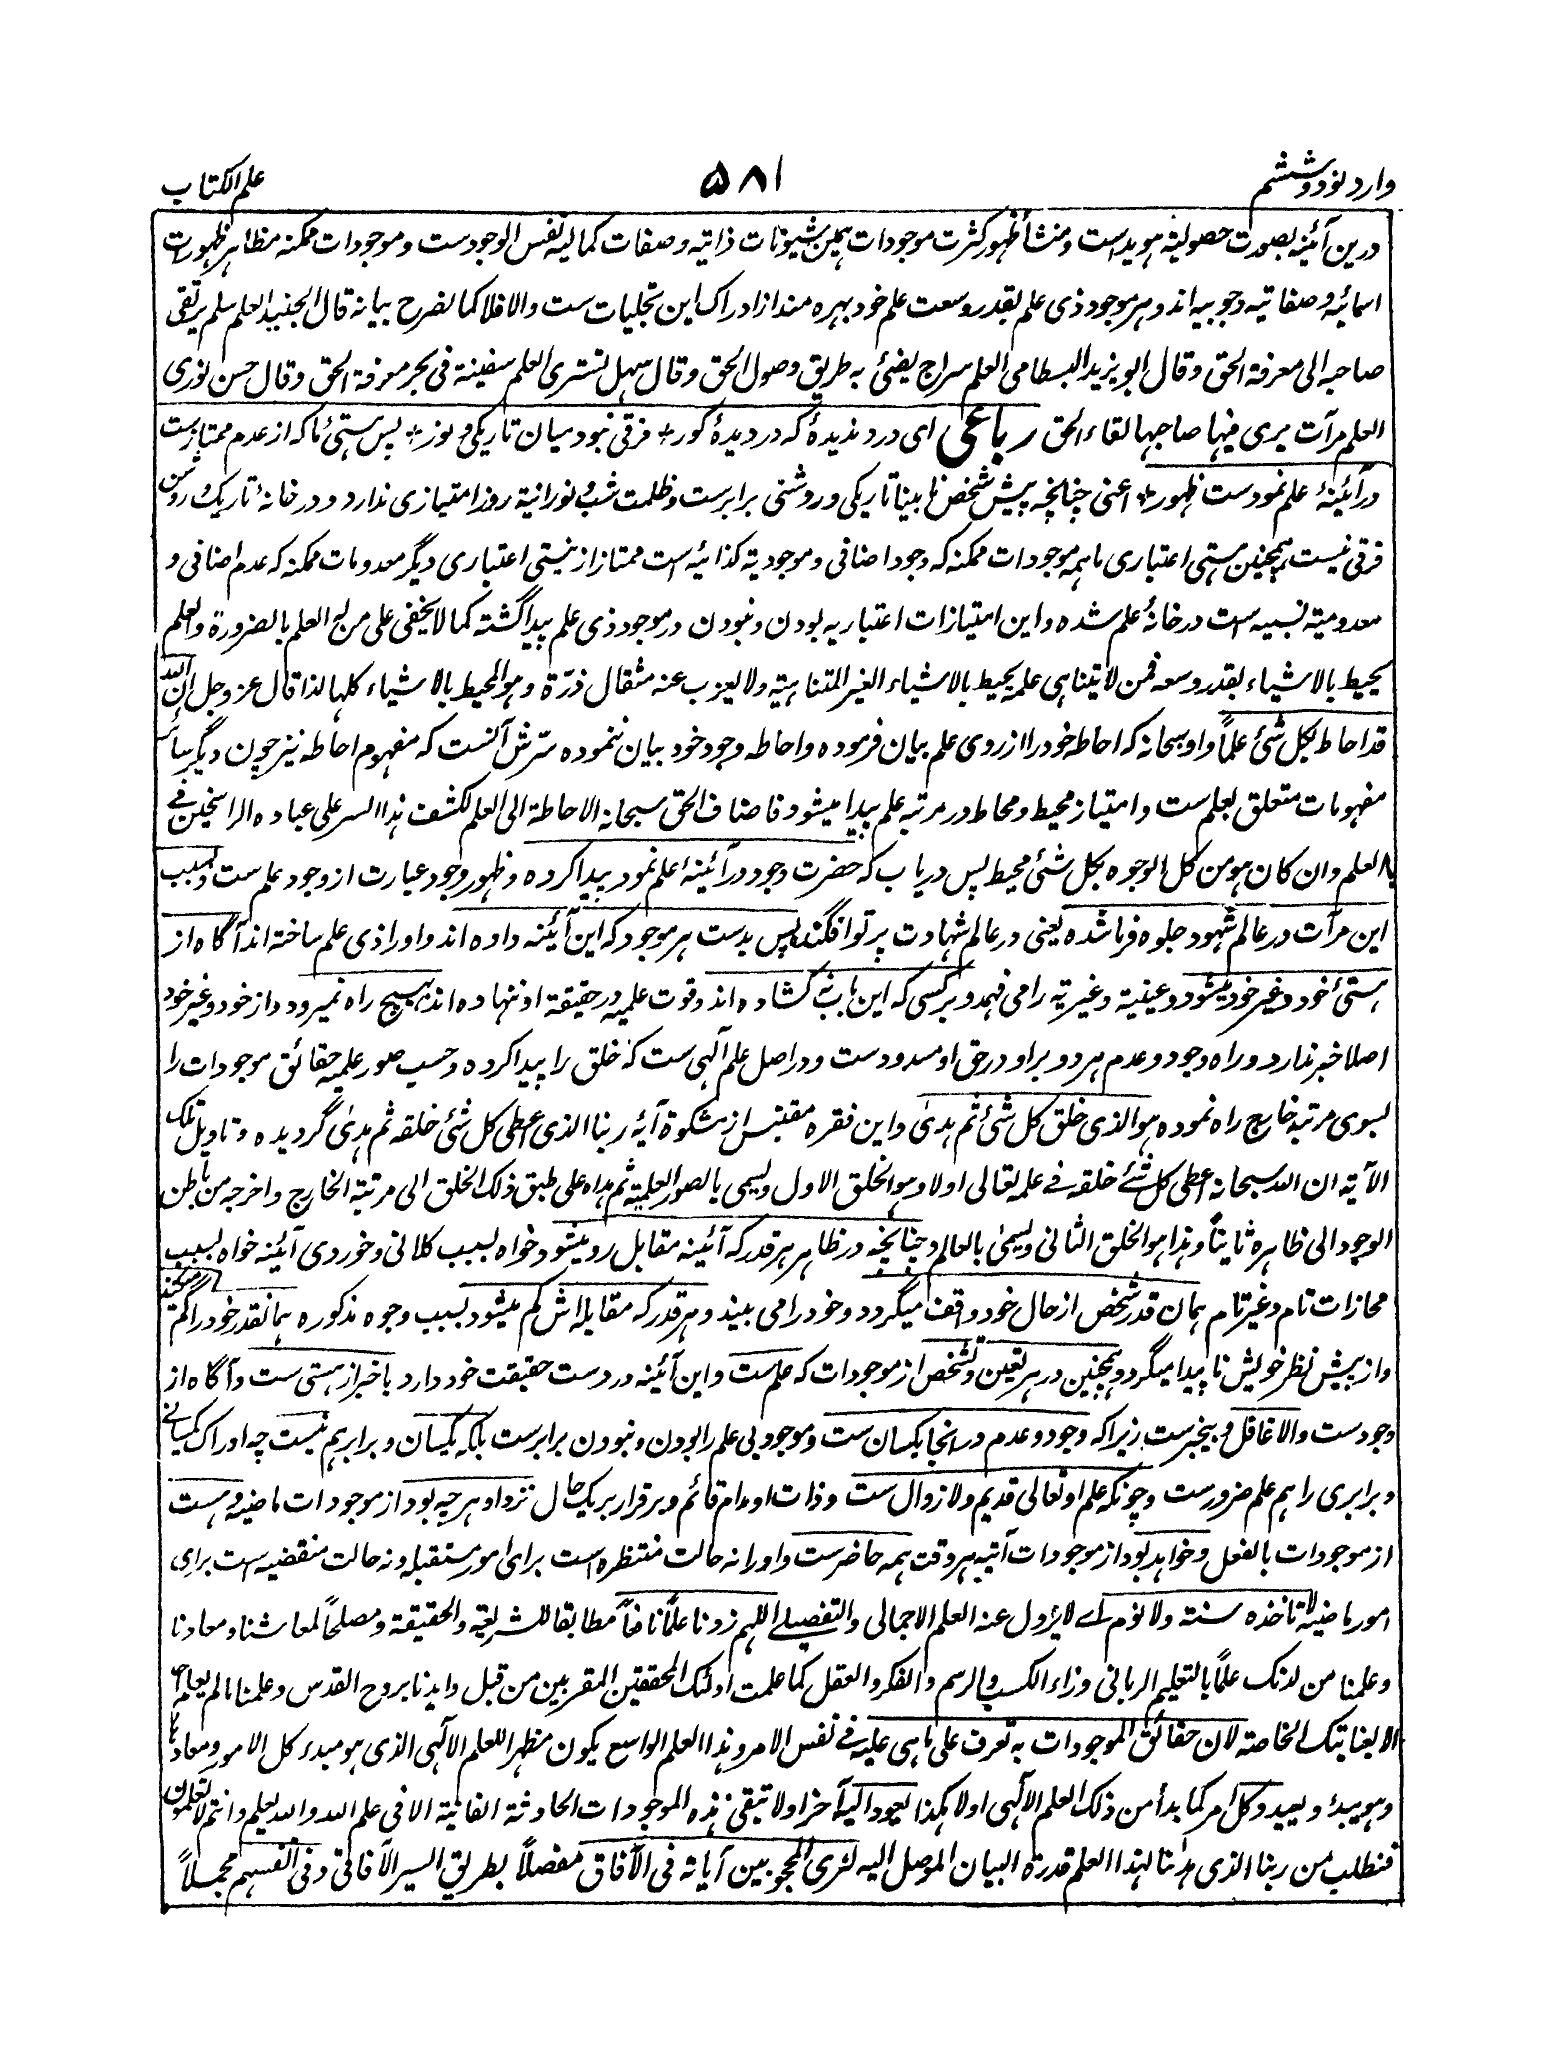 وارد نود و ششم
۵۸۱
علم الکتاب
درین آئینه بصورت حصولیه هویداست و منشأ ظهور کثرت موجودات همین شیونات ذاتیه و صفات کمالیه نفس الوجودست و موجودات ممکنه مظاهر ظهورات
اسمائیه و صفاتیه وجوبیه اند و هر موجود ذی علم بقدر وسعت علم خود بهره مند از ادراک این تجلیات ست والا فلا کما نصرح بیانه قال الجنید العلم سلم یرتقی
صاحبه الی معرفة الحق و قال ابو یزید البسطامی العلم سراج یضئی به طریق وصول الحق و قال سهل تستری العلم سفینة فی بحر معرفة الحق و قال حسن نوری
العلم مرآت یری فیها صاحبها لقاء الحق رباعی ای درد ندیدهٔ که در دیدهٔ کور * فرقی نبود میان تاریکی و نور * پس هستیٔ ما که از عدم ممتازست
در آئینهٔ علم نمودست ظهور * اعنی چنانچه پیش شخص نابینا تاریکی و روشنی برابرست و ظلمت شب و نورانیة روز امتیازی ندارد و در خانهٔ تاریک و روشن
فرقی نیست همچنین هستی اعتباری ما همه موجودات ممکنه که وجود اضافی و موجودیة کذائیه است ممتاز از نیستی اعتباری دیگر معدومات ممکنه که عدم اضافی و
معدومیة نسبیه است در خانهٔ علم شده و این امتیازات اعتباریه بودن و نبودن در موجود ذی علم پیدا گشته کما لا یخفی علی من له العلم بالضرورة والعلم
یحیط بالاشیاء بقدر وسعه فمن لا یتناهی علمه یحیط بالاشیاء الغیر المتناهیة ولا یعزب عنه مثقال ذرّة و هو المحیط بالاشیاء کلها لذا قال عز و جل ان الله
قد احاط بکل شئ علماً و او سبحانه که احاطه خود را از روی علم بیان فرموده و احاطه وجود خود بیان ننموده سرّش آنست که مفهوم احاطه نیز چون دیگر سائر
مفهومات متعلق بعلم ست و امتیاز محیط و محاط در مرتبه علم پیدا میشود فاضاف الحق سبحانه الاحاطة الی العلم لکشف هذا السر علی عباده الراسخین فے
العلم و ان کان هو من کل الوجوه بکل شئ محیط پس دریاب که حضرت وجود در آئینهٔ علم نمود پیدا کرده و ظهور وجود عبارت از وجود علم ست و بسبب
این مرآت در عالم شهود جلوه فرما شده یعنی در عالم شهادت پرتو افگنده پس بدست هر موجود که این آئینه داده اند و او را ذی علم ساخته اند آگاه از
هستیٔ خود و غیر خود میشود و عینیة و غیریة را می فهمد و بر کسی که این باب نه کشاده اند و قوت علمیه در حقیقة او ننهاده اند هیچ راه نمیرود و از خود و غیر خود
اصلا خبر ندارد و راه وجود و عدم هر دو بر او در حق او مسدودست و در اصل علم آلهی ست که خلق را پیدا کرده و حسب صور علمیه حقائق موجودات را
بسوی مرتبه خارج راه نموده هو الذی خلق کل شئ ثم هدیٰ و این فقره مقتبس از مشکوة آیهٔ ربنا الذی اعطی کل شئ خلقه ثم هدیٰ گردیده و تاویل تلک
الآیة ان الله سبحانه اعطی کل شئے خلقه فے علمه تعالی اولا و هو الخلق الاول ویسمی بالصور العلمیة ثم هداه علی طبق ذلک الخلق الی مرتبة الخارج و اخرجه من باطن
الوجود الی ظاهره ثانیاً و هذا هو الخلق الثانی ویسمیٰ بالعالم و چنانچه در ظاهر هر قدر که آئینه مقابل رو میشود خواه بسبب کلانی و خوردی آئینه خواه بسبب
محاذات تام و غیر تام همان قدر شخص از حال خود واقف میگردد و خود را می بیند و هر قدر که مقابله اش کم میشود بسبب وجوه مذکوره همانقدر خود را گم میکند
و از پیش نظر خویش ناپیدا میگردد همچنین در هر تعین و تشخص از موجودات که علم ست و این آئینه در دست حقیقت خود دارد باخبر از هستی ست و آگاه از
وجودست والا غافل و بیخبرست زیرا که وجود و عدم در آنجا یکسان ست و موجود بی علم را بودن و نبودن برابرست بلکه یکسان و برابر هم نیست چه ادراک یکسانے
و برابری را هم علم ضرورست و چونکه علم او تعالی قدیم و لازوال ست و ذات او مدام قائم و برقرار بر یک حال نزد او هر چه بود از موجودات ماضیه و هست
از موجودات بالفعل و خواهد بود از موجودات آتیه هر وقت همه حاضرست و او را نه حالت منتظره است برای امور مستقبله و نه حالت منقضیه است برای
امور ماضیه لا تاخذه سنة ولا نوم اے لا یزول عنه العلم الاجمالی والتفصیلے اللهم زدنا علماً نافعاً مطابقا للشریعة والحقیقة و مصلحاً لمعاشنا و معادنا
و علمنا من لدنک علماً بالتعلیم الربانی وراء الکسب والرسم والفکر والعقل کما علمت اولئک المحققین المقربین من قبل وایدنا بروح القدس و علمنا ما لم یعلم
الا بعنایتک الخاصة لان حقائق الموجودات به تعرف علی ما هی علیه فے نفس الامر و هذا العلم الواسع یکون مظهرا للعلم الالٰهی الذی هو مبدء کل الامور و معادها
و هو یبدئ و یعید و کل امر کما بدأ من ذلک العلم الالٰهی اولا هکذا یعود الیه آخرا ولا تبقی هذه الموجودات الحادثة الفانیة الا فی علم الله والله یعلم و انتم لا تعلمون
فنطلب من ربنا الذی هدٰنا لهذا العلم قدرة البیان الموصل الیه لنری المحجوبین آیاته فی الآفاق مفصلاً بطریق السیر الآفاقی و فی انفسهم مجملاً